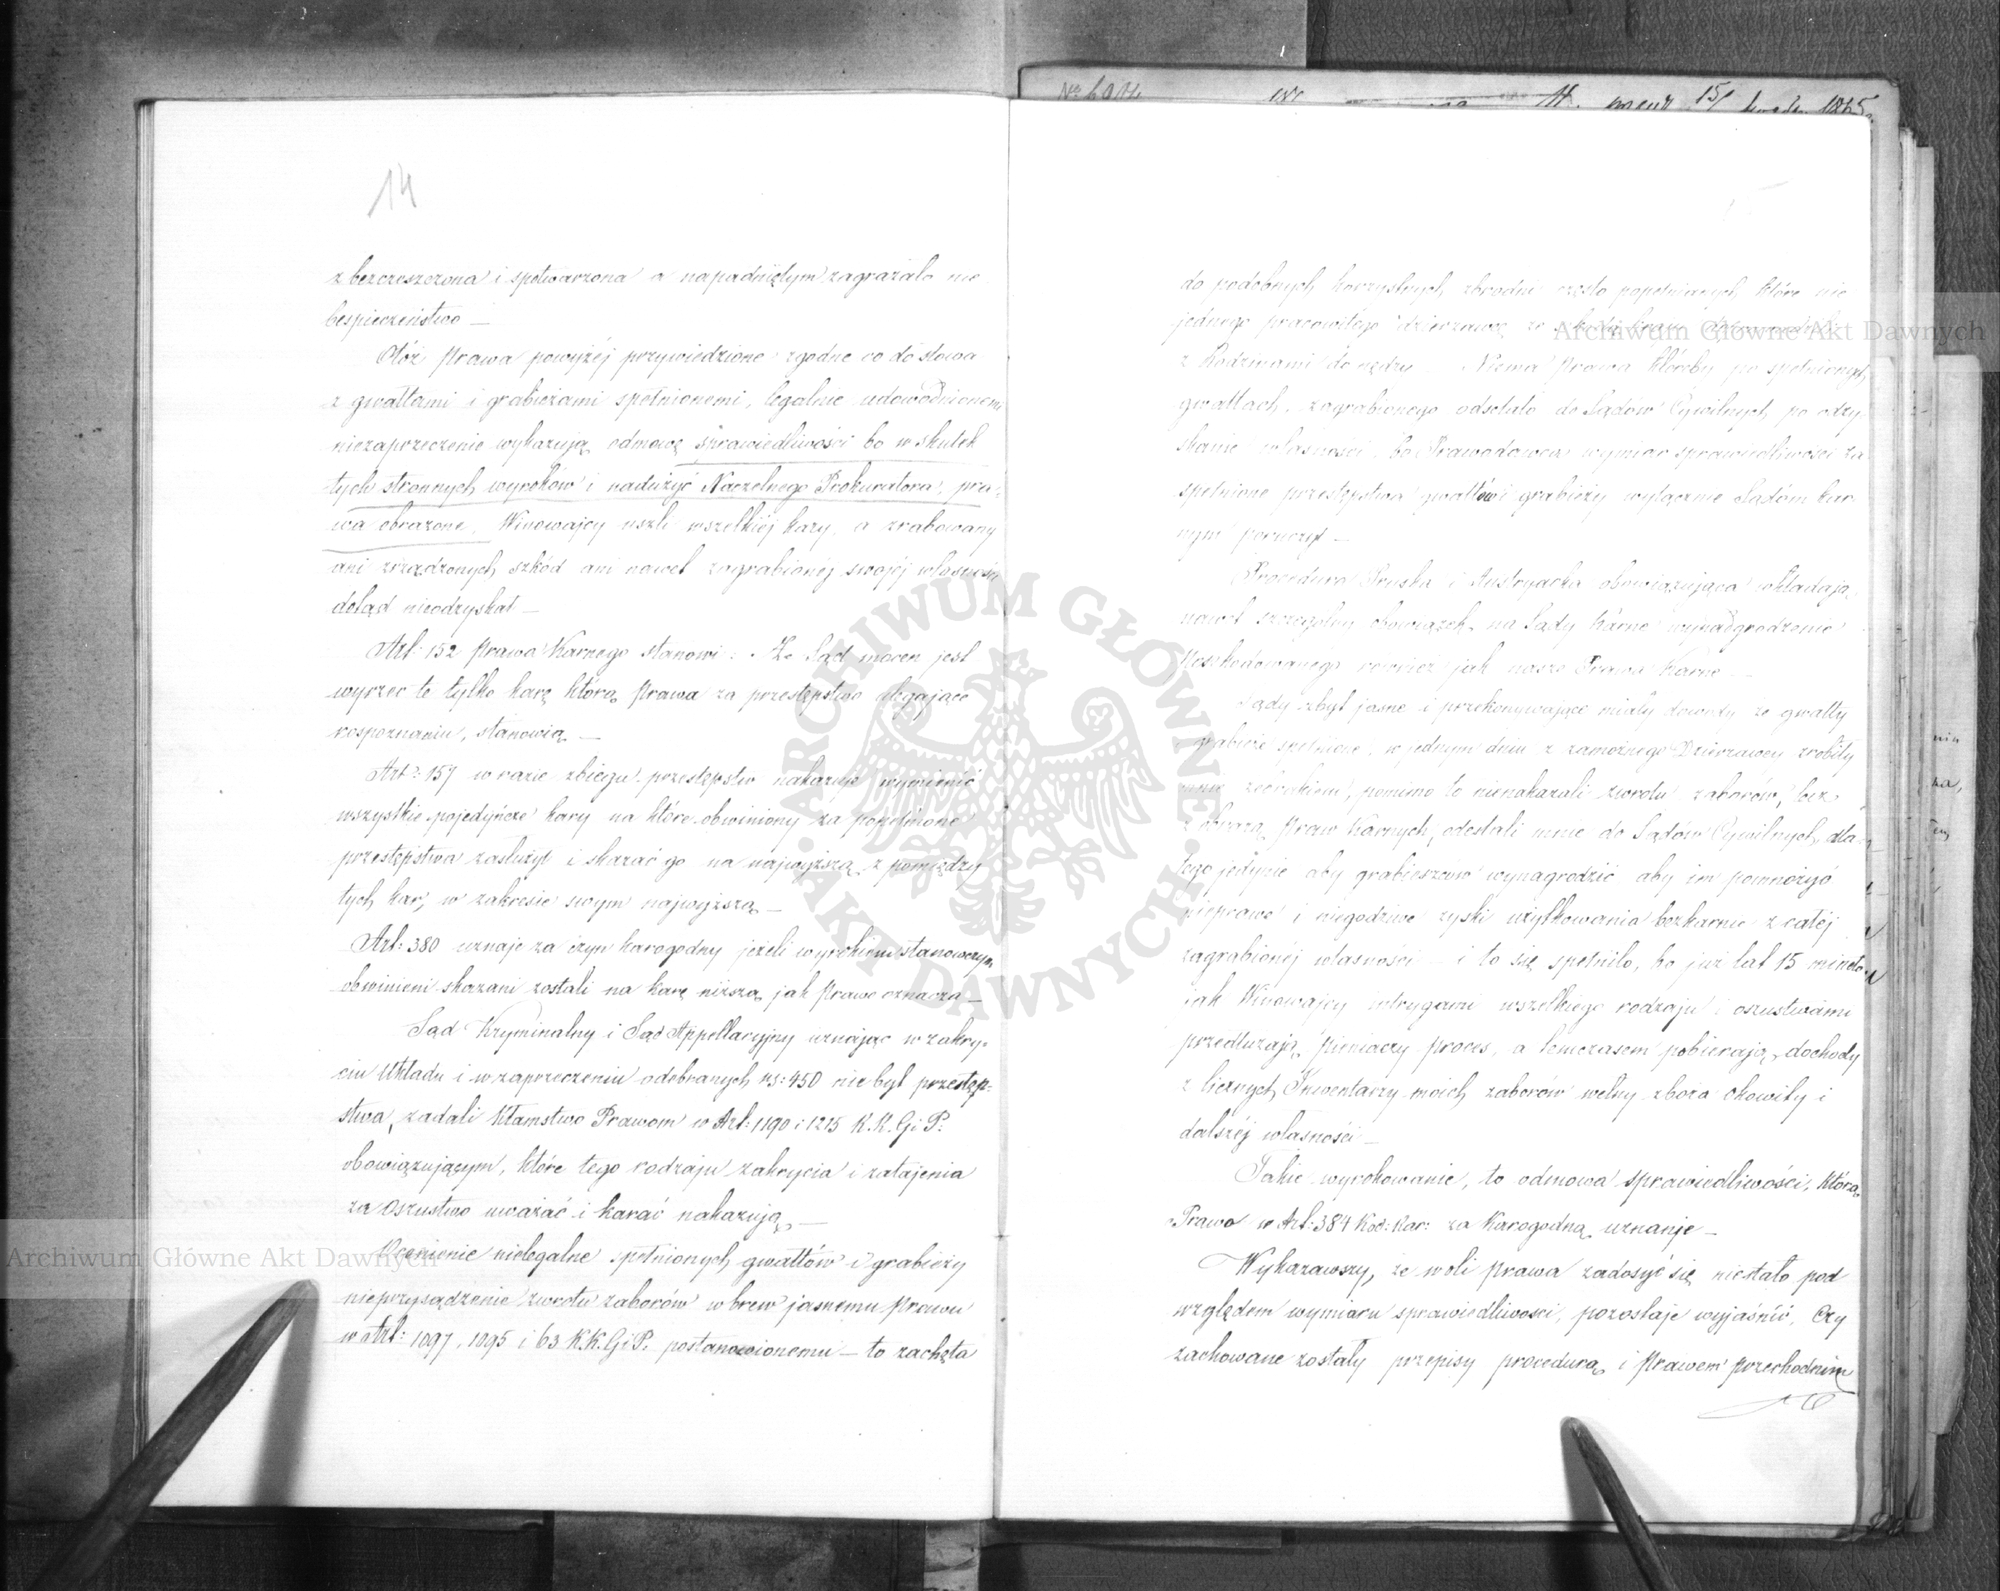 14
zbezczeszczona i spotwarzona a napadniętym zagrażało nie
bespieczeństwo —
Otóż Prawa powyżéj przywiedzione zgodne co do słowa
z gwałtami i grabieżami spełnionemi, legalnie udowodnionemi
niezaprzeczenie wykazują odmowę sprawiedliwości bo w skutek
tych stronnych wyroków i nadużyć Naczelnego Prokuratora, pra-
wa obrażone. Winowajcy uszli wszelkiéj kary, a zrabowany
ani zrządzonych szkód ani nawet zagrabionéj swojéj własności
dotąd nieodzyskał —
Art: 152 Prawa Karnego stanowi: Że Sąd mocen jest
wyrzec te tylko karę którą Prawa za przestępstwo ulegające
rospoznaniu, stanowią —
Art: 157 w razie zbiegu przestępstw nakazuje wymienić
wszystkie pojedyńcze kary na które obwiniony za popełnione
przestępstwa zasłużył i skazać go na najwyższą z pomiędzy
tych kar, w zakresie swym najwyższą —
Art: 380 uznaje za czyn karogodny jeżeli wyrokiem stanowczym
obwinieni skazani zostali na karę niższą jak Prawo oznacza —
Sąd Kryminalny i Sąd Appellacyjny uznając w zakry-
ciu Układu i w zaprzeczeniu odebranych rs: 450 nie był przestęp-
stwa, zadali kłamstwo Prawom w Art: 1190 i 1215 K.K.G i P.
obowiązującym, które tego rodzaju zakrycia i zatajenia
za Oszustwo uważać i karać nakazują —
Ocenienie nielegalne spełnionych gwałtów i grabieży
nieprzysądzenie zwrotu zaborów wbrew jasnemu Prawu
w Art: 1097, 1095 i 63 K.K.G i P. postanowionemu — to zachęta
do podobnych korzystnych zbrodni często popełnianych które nie
jednego pracowitego dzierżawcę ze szkodą
z Rodzinami do nędzy. Niema Prawa któreby po spełnionych
gwałtach, zagrabionego odsełało do Sądów Cywilnych po odzy-
skanie własności, bo Prawodawca wymiar sprawiedliwości za
spełnione przestępstwa gwałtów i grabieży wyłącznie Sądom kar-
nym poruczył —
Procedura Pruska i Austryacka obowiązująca wkładają
nawet szczególny obowiązek na Sądy Karne wynadgrodzenie
Poszkodowanego również jak nasze Prawa Karne —
Sądy zbyt jasne i przekonywające miały dowody że gwałty
grabieże spełnione, w jednym dniu z zamożnego Dzierżawcy zrobiły
mnie żebrakiem, pomimo to nienakazali zwrotu zaborów, lecz
z obrazą Praw Karnych, odesłali mnie do Sądów Cywilnych, dla
tego jedynie aby grabieszców wynagrodzić aby im pomnożyć
nieprawe i niegodziwe zyski użytkowania bezkarnie z całéj
zagrabionéj własności — i to się spełniło, bo już lat 15 mineło
jak Winowajcy intrygami wszelkiego rodzaju i oszustwami
przedłużają pieniaczy proces, a temczasem pobierają dochody
z licznych Inwentarzy moich zaborów wełny zboża okowity i
dalszéj własności —
Takie wyrokowanie, to odmowa sprawiedliwości, którą
Prawo w Art: 384 Kod: Kar: za Karogodną uznanje —
Wykazawszy, że woli prawa zadosyć się niestało pod
względem wymiaru sprawiedliwości, pozostaje wyjaśnić, Czy
zachowane zostały przepisy procedurą i Prawem przechodnim
Archiwum Główne Akt Dawnych
Archiwum Główne Akt Dawnych
ARCHIWUM GŁÓWNE
AKT DAWNYCH